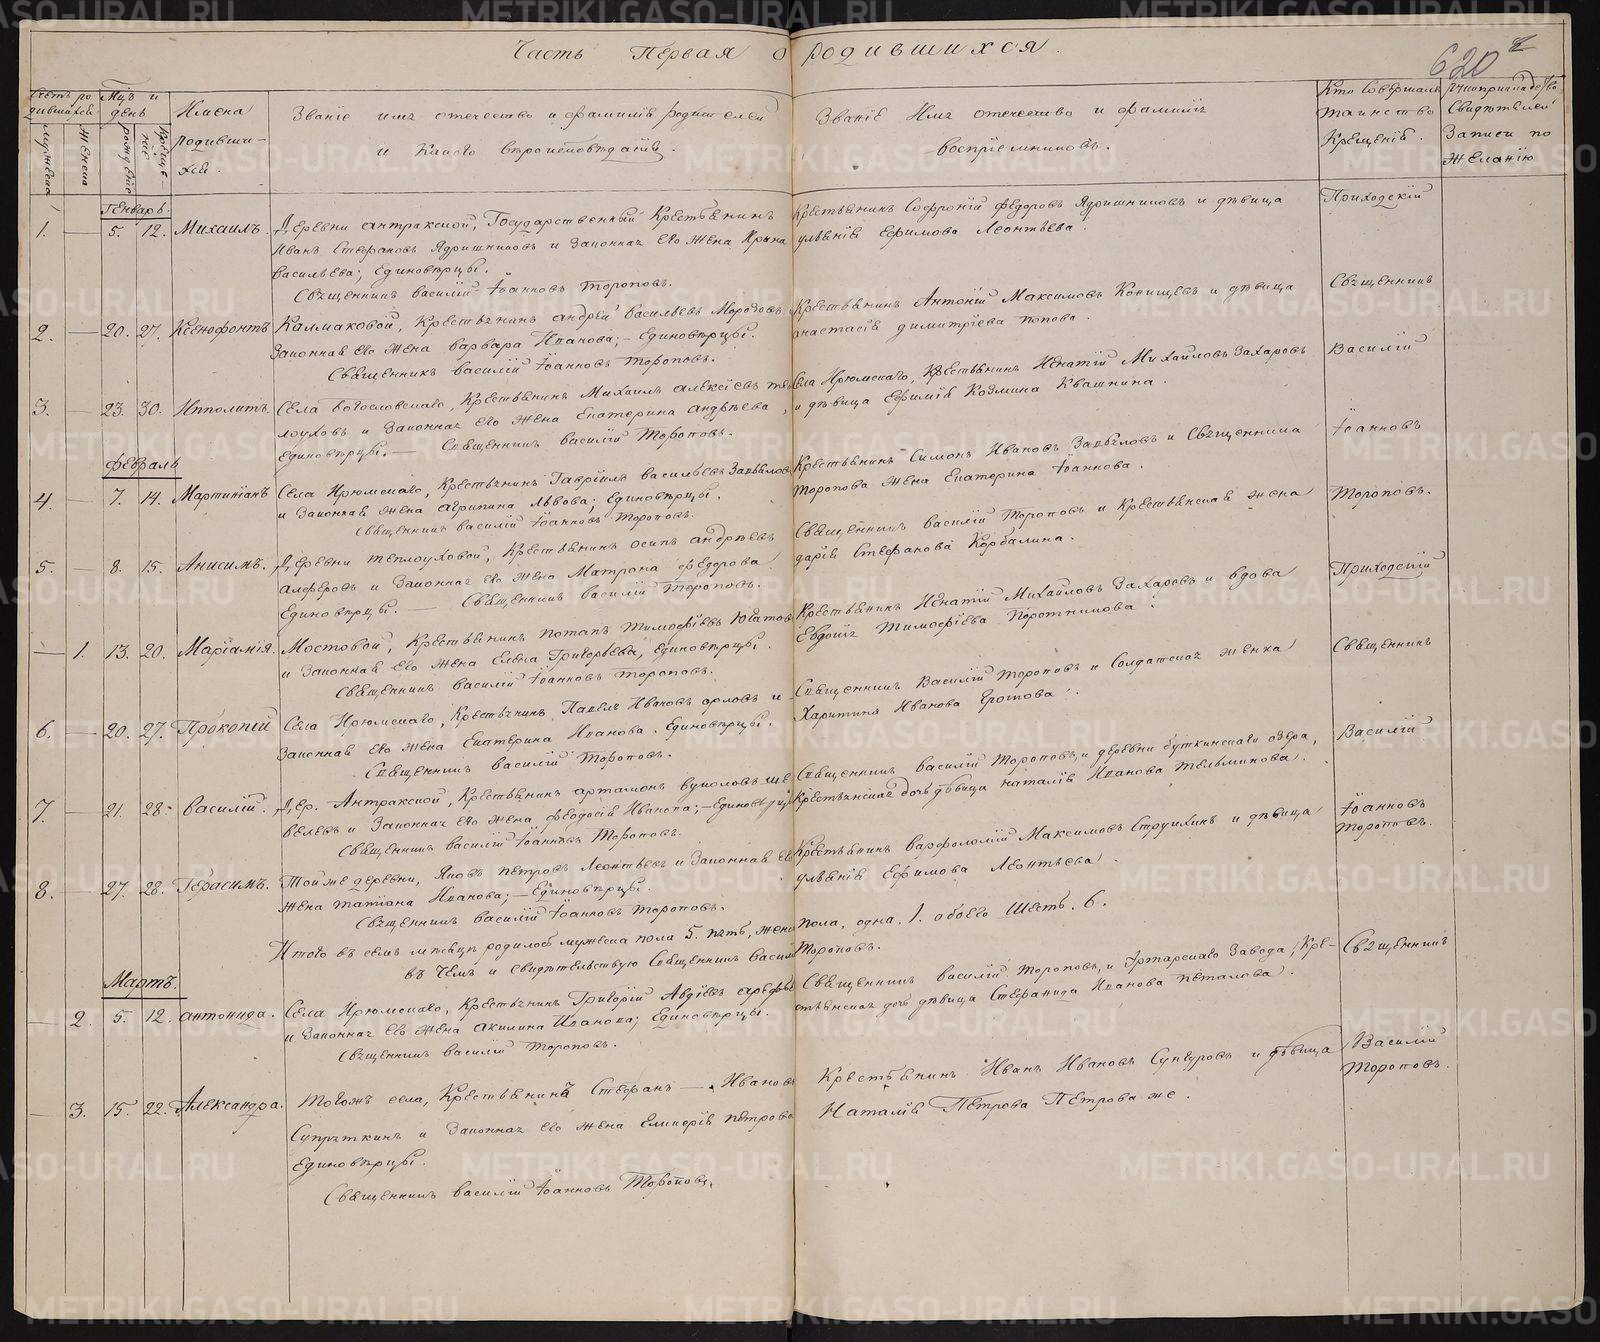 Часть Первая о родившихся.
620
Счетъ родившихся
Мужеска
Женска
Мцъ и день
рожденіе
крещеніе
Имена родившихся.
Званіе имя отечество и фамилія родителей
и какого вѣроисповѣданія.
Званіе Имя отечество и фамилія
воспріемниковъ.
Кто совершалъ таинство Крещенія.
Рукоприкладство Свидѣтелей Записи по желанію
Генварь.
1. — 5. 12. Михаилъ. Деревни антракской, Государственный Крестьянинъ
Иванъ Стефановъ Ядришниковъ и Законная его жена Ирина
Васильева; Единовѣрцы.
Священникъ василій Іоанновъ Тороповъ.
Крестьянинъ Софроній Федоровъ Ядришниковъ и дѣвица
ульянія Ефимова Леонтьева.
Приходскій
2. — 20. 27. Ксенофонтъ Калмаковой, Крестьянинъ андрей васильевъ Морозовъ
Законная его жена варвара Иванова; — Единовѣрцы.
Священникъ василій Іоанновъ Тороповъ.
Крестьянинъ Антоній Максимовъ Конищевъ и дѣвица
анастасія димитріева попова.
Священникъ
3. — 23. 30. Ипполитъ. Села богословскаго, Крестьянинъ Михаилъ алексіевъ те
лоуховъ и Законная его жена Екатерина андрѣева,
Единовѣрцы. — Священникъ василій Тороповъ.
Села Ирюмскаго, Крестьянинъ Игнатій Михайловъ Захаровъ
и дѣвица Ефимія Козмина Квашнина.
Василій
Февраль
4. — 7. 14. Мартиніанъ Села Ирюмскаго, Крестьянинъ Гавріилъ васильевъ Завьялов
и Законная жена агрипина Львова; Единовѣрцы.
Священникъ василій Іоанновъ Тороповъ.
Крестьянинъ Симонъ Ивановъ Завьяловъ и Священника
Торопова жена Екатерина Іоаннова.
Іоанновъ
5. — 8. 15. Анисимъ. Деревни теплоуховой, Крестьянинъ осипъ андрѣевъ
алферовъ и Законная его жена Матрона федорова
Единовѣрцы. — Священникъ василій Тороповъ.
Священникъ василій Тороповъ и Крестьянская жена
дарія Стефанова Корбалина.
Тороповъ.
— 1. 13. 20. Маріамія. Мостовой, Крестьянинъ потапъ тимофіевъ Югатов
и Законная его жена Елена Григорьева, Единовѣрцы.
Священникъ василій Іоанновъ Тороповъ.
Крестьянинъ Игнатій Михайловъ Захаровъ и вдова
Евдокія Тимофіева Поротникова.
Приходскій
6. — 20. 27. Прокопій Села Ирюмскаго, Крестьянинъ Павелъ Ивановъ орловъ и
Законная его жена Екатерина Иванова. Единовѣрцы.
Священникъ василій Тороповъ.
Священникъ Василій Тороповъ и Солдатская женка
Харитина Иванова Еротова.
Священникъ
7. — 21. 28. Василій. Дер. Антракской, Крестьянинъ артамонъ вуколовъ ше
велевъ и Законная его жена феодосія Иванова; — Единовѣрцы
Священникъ василій Іоанновъ Тороповъ.
Священникъ василій Тороповъ, и деревни буткинскаго озера,
Крестьянская дочь дѣвица наталія Иванова тельминова.
Василій
8. — 27. 28. Герасимъ. Тойже деревни, Яковъ петровъ Леонтьевъ и Законная его
жена татіана Иванова; — Единовѣрцы.
Священникъ василій Іоанновъ Тороповъ.
Крестьянинъ варфоломій Максимовъ Струихинъ и дѣвица
ульянія Ефимова Леонтьева.
Іоанновъ
Тороповъ.
Итого въ семъ мѣсяцѣ родилось мужеска пола 5. пять, жен пола, одна, 1. обоего Шесть. 6.
въ чемъ и свидѣтельствую Священникъ васил Тороповъ.
Мартъ.
— 2. 5. 12. антонида. Села Ирюмскаго, Крестьянинъ Григорій Авдіевъ арефьев
и Законная его жена акилина Иванова; Единовѣрцы.
Священникъ василій Тороповъ.
Священникъ василій Тороповъ, и Уртарскаго Завода, Кре-
стьянская дочь дѣвица Стефанида Иванова петалова.
Священникъ
— 3. 15. 22. Александра. Тогожъ села, Крестьянинъ Стефанъ — Ивановъ
Супрыткинъ и Законная его жена Гликерія петрова
Единовѣрцы.
Священникъ василій Іоанновъ Тороповъ.
Крестьянинъ Иванъ Ивановъ Сунгуровъ и дѣвица
Наталія Петрова Петрова же.
Василій
Тороповъ.
METRIKI.GASO-URAL.RU